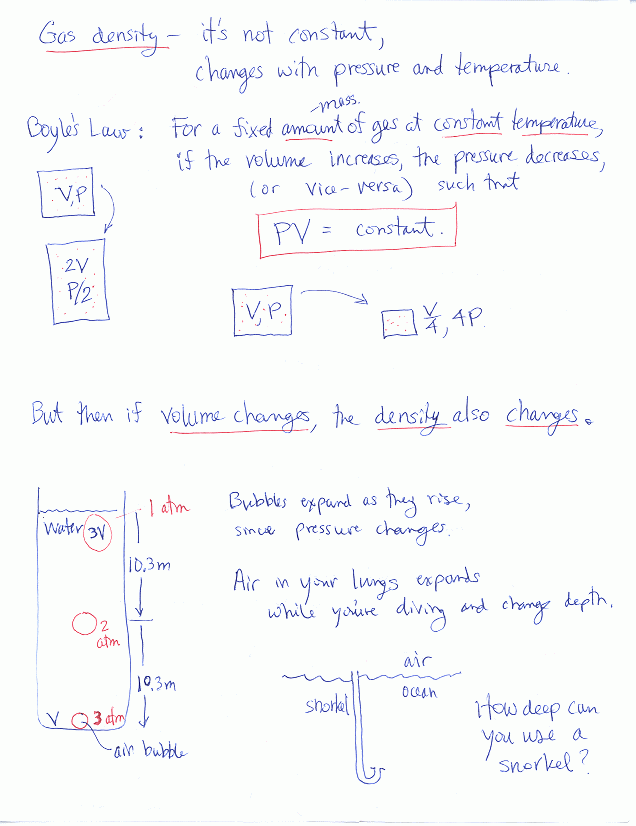 Gas density – it's not constant,
changes with pressure and temperature.
mass.
Boyle's Law: For a fixed amount of gas at constant temperature,
if the volume increases, the pressure decreases,
(or vice-versa) such that
V,P
PV = constant.
2V
P/2
V,P.
V/4, 4P.
But then if volume changes, the density also changes.
1 atm
water 3V
10.3m
2
atm
10.3m
V 3 atm
air bubble
Bubbles expand as they rise,
since pressure changes.
Air in your lungs expands
while you're diving and change depth.
air
ocean
snorkel
How deep can
you use a
snorkel?